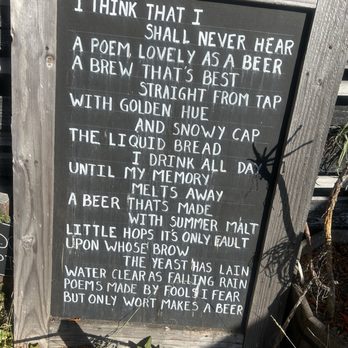 I THINK THAT I
SHALL NEVER HEAR
A POEM LOVELY AS A BEER
A BREW THAT'S BEST
STRAIGHT FROM TAP
WITH GOLDEN HUE
AND SNOWY CAP
THE LIQUID BREAD
I DRINK ALL DAY
UNTIL MY MEMORY
MELTS AWAY
A BEER THATS MADE
WITH SUMMER MALT
LITTLE HOPS ITS ONLY FAULT
UPON WHOSE BROW
THE YEAST HAS LAIN
WATER CLEAR AS FALLING RAIN
POEMS MADE BY FOOLS I FEAR
BUT ONLY WORT MAKES A BEER